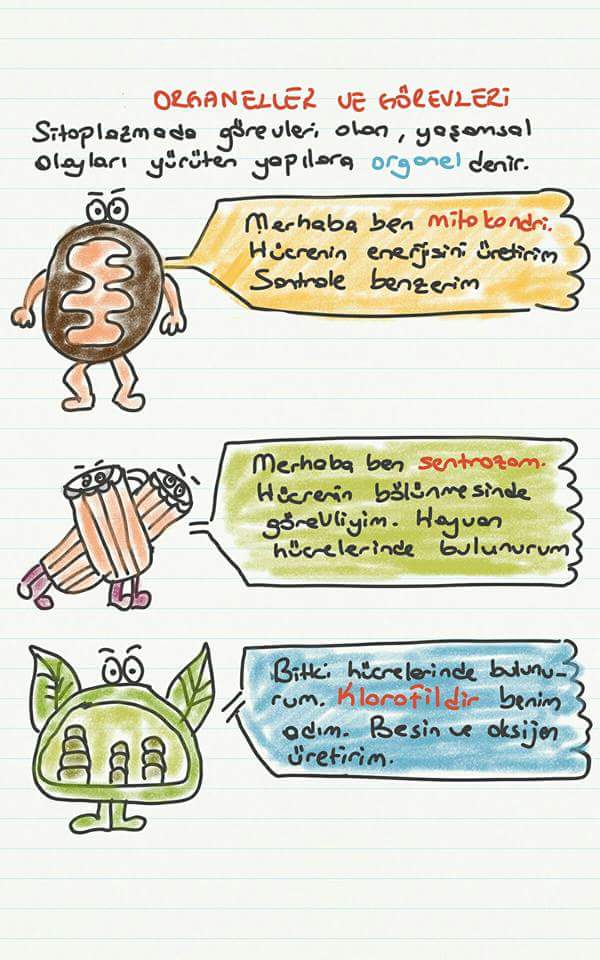 ORGANELLER VE GÖREVLERİ
Sitoplazmada görevleri olan, yaşamsal
olayları yürüten yapılara organel denir.
Merhaba ben mitokondri.
Hücrenin enerjisini üretirim
Santrale benzerim
Merhaba ben sentrozom.
Hücrenin bölünmesinde
görevliyim. Hayvan
hücrelerinde bulunurum
Bitki hücrelerinde bulunu-
rum. Klorofildir benim
adım. Besin ve oksijen
üretirim.